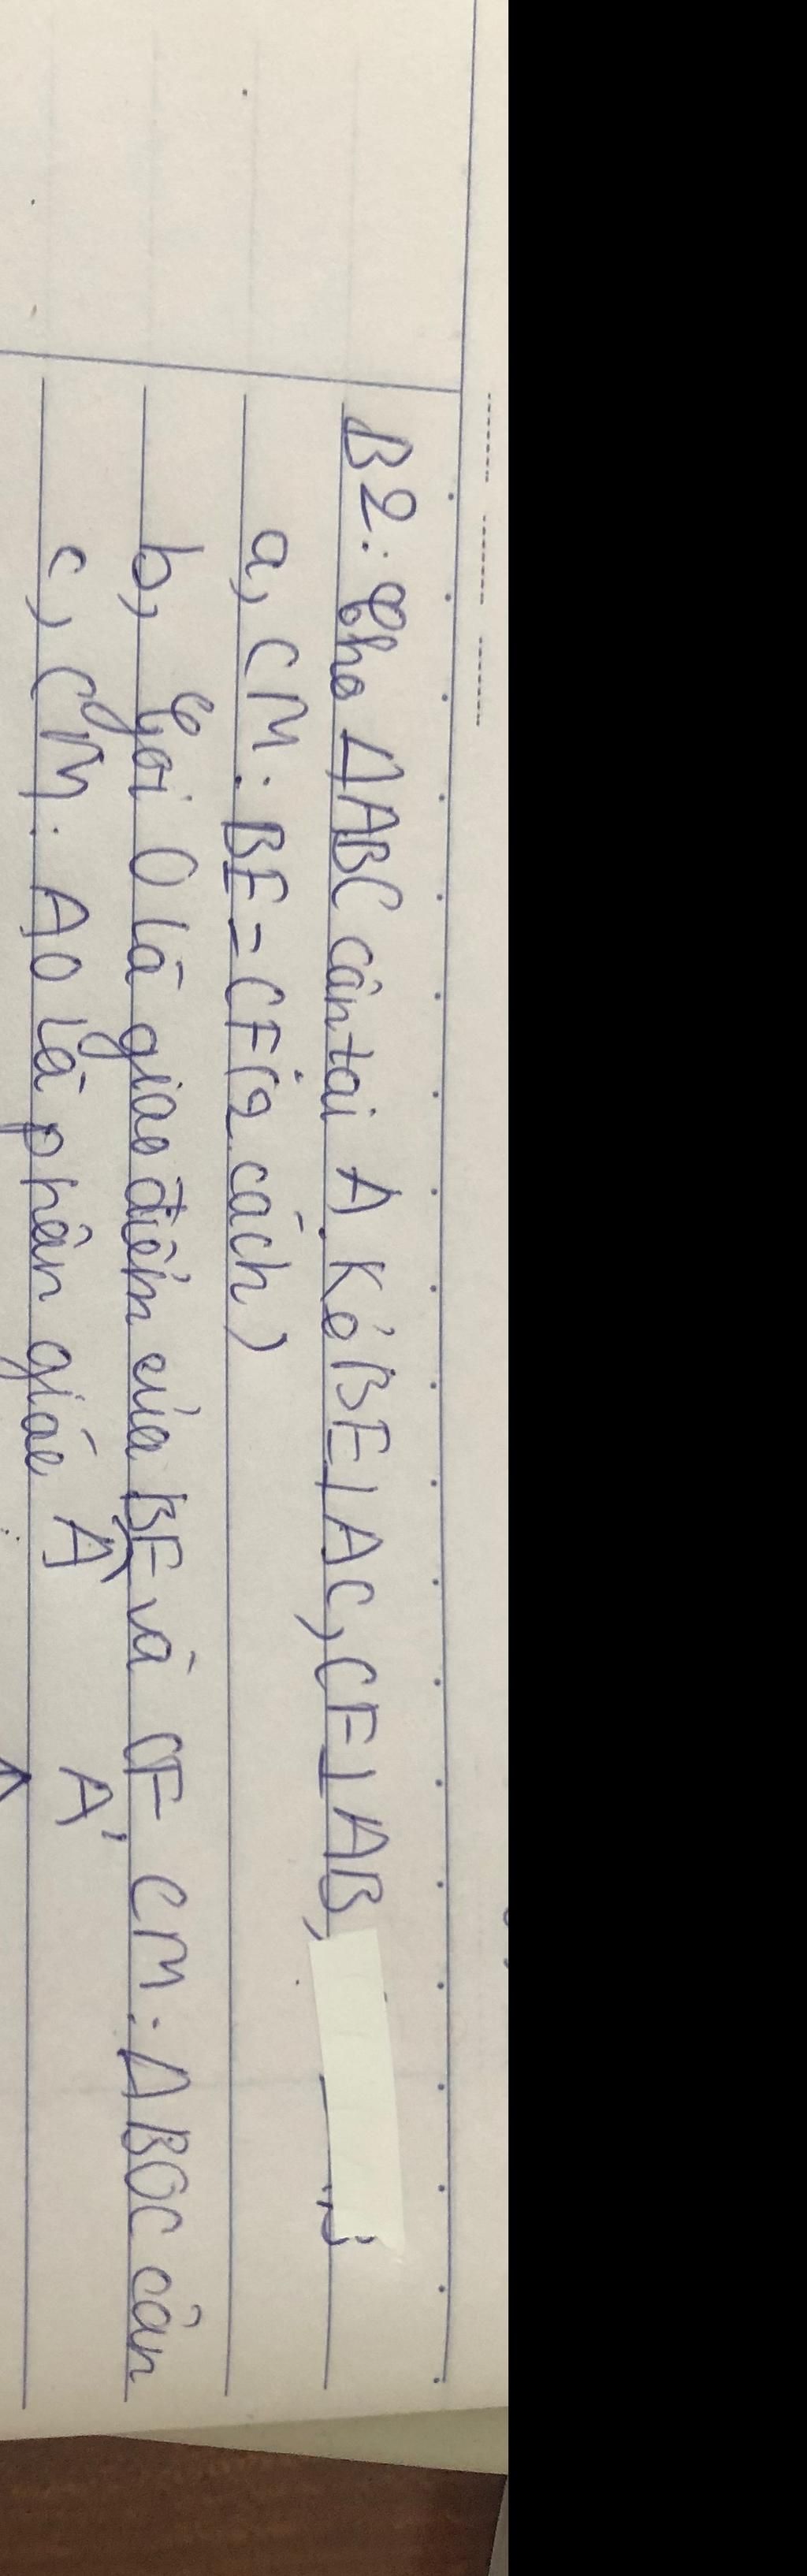 B2: Cho ΔABC cân tại A. Kẻ BE⊥AC, CF⊥AB,
a, CM: BE=CF (2 cách)
b, Gọi O là giao điểm của BE và CF. CM: ΔBOC cân
c, CM: AO là phân giác Â A'